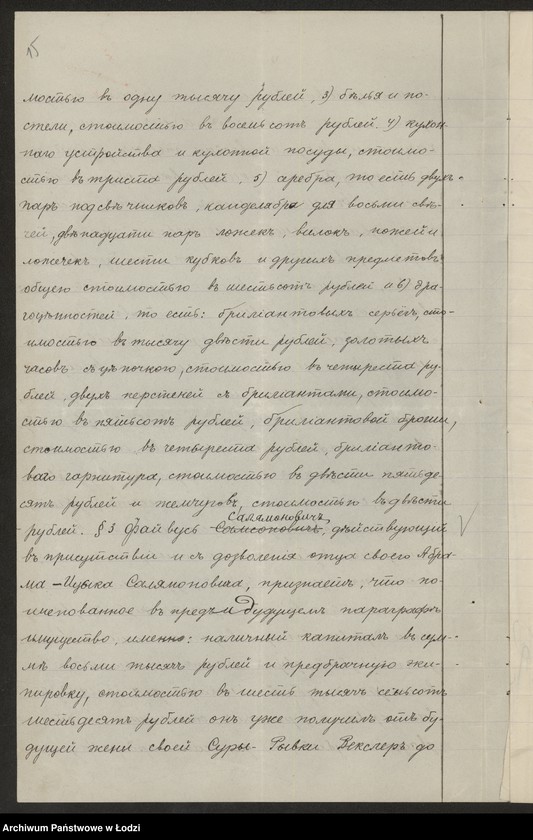 15
мостью въ одну тысячу рублей, 3) бѣлья и по-
стели, стоимостью въ восемьсотъ рублей. 4) кухон-
наго устройства и кухонной посуды, стоимо-
стью въ триста рублей. 5) серебра, то есть двухъ
паръ подсвѣчниковъ, канделябра для восьми свѣ-
чей, двѣнадцати паръ ложекъ, вилокъ, ножей и
ложечекъ, шести кубковъ и другихъ предметовъ
общею стоимостью въ шестьсотъ рублей и 6) дра-
гоцѣнностей, то есть: брилiантовыхъ серьгъ, сто-
имостью въ тысячу двѣсти рублей, золотыхъ
часовъ съ цѣпочкою, стоимостью въ четыреста ру-
блей, двухъ перстней съ брилiантами, стоимо-
стью въ пятьсотъ рублей, брилiантовой броши,
стоимостью въ четыреста рублей, брилiанто-
ваго гарнитура, стоимостью въ двѣсти пятьде-
сятъ рублей и жемчуговъ, стоимостью въ двѣсти
Салямоновичъ
рублей. § 3 Файвусь Самсоновичъ, дѣйствующiй
въ присутствiи и съ дозволенiя отца своего Абра-
ма-Ицыка Салямоновича, признаетъ, что по-
именованное въ предъидущемъ параграфѣ
имущество, именно: наличный капиталъ въ сум-
мѣ восьми тысячъ рублей и предбрачную эки-
пировку, стоимостью въ шесть тысячъ семьсотъ
шестьдесятъ рублей онъ уже получилъ отъ бу-
дущей жены своей Суры-Рывки Векслеръ до
Archiwum Państwowe w Łodzi